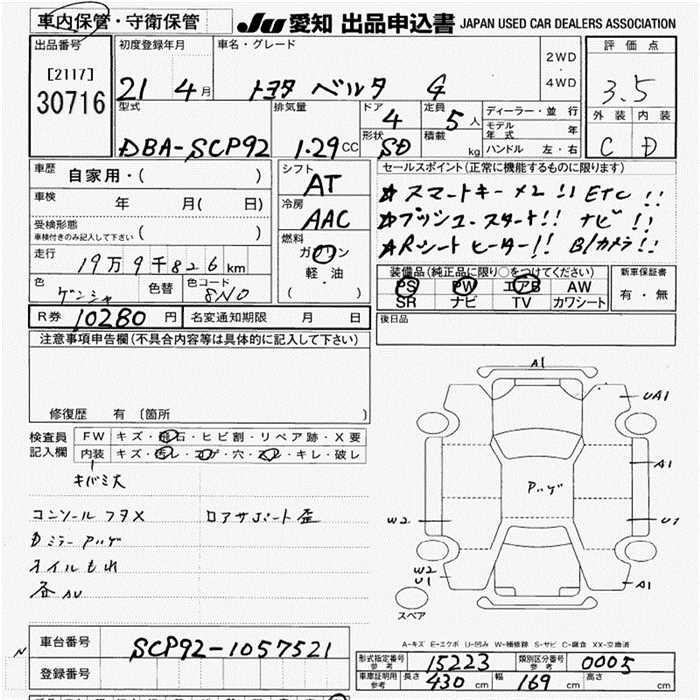 車内保管・守衛保管
JU 愛知 出品申込書 JAPAN USED CAR DEALERS ASSOCIATION
出品番号
[2117]
30716
初度登録年月
21 4月
車名・グレード
トヨタ ベルタ G
2WD
・
4WD
評価点
3.5
外装 内装
C D
型式
DBA-SCP92
排気量
1.29CC
ドア
4
定員
5人
形状
SD
積載
kg
ディーラー・並行
モデル年式
ハンドル 左・右
車歴
自家用・( )
車検
年 月( 日)
受検形態
車検付きのみ記入して下さい ( )
走行
19万9千826km
色
ゲンシャ
色替
色コード
8N0
シフト
AT
冷房
AAC
燃料
ガソリン
軽油
( )
セールスポイント(正常に機能するものに限ります)
☆スマートキー×2!! ETC!!
☆プッシュスタート!! ナビ!!
☆Rシートヒーター!! B/カメラ!!
装備品(純正品に限り○をつけてください)
PS PW エアB AW
SR ナビ TV カワシート
新車保証書
有・無
R券 10280円
名変通知期限 月 日
後日品
注意事項申告欄(不具合内容等は具体的に記入して下さい)
修復歴 有 [箇所 ]
検査員記入欄
FW キズ・飛石・ヒビ割・リペア跡・X要
内装 キズ・汚レ・コゲ・穴・スレ・キレ・破レ
キバミ大
コンソールフタX ロアサポート歪
Dミラー Pハゲ
オイルもれ
A1
UA1
A1
Pハゲ
W2
U1
W2
U1
A1
スペア
A-キズ E-エクボ U-凹み W-補修跡 S-サビ C-腐食 XX-交換済
車台番号
SCP92-1057521
登録番号
形式指定番号
参考
15223
類別区分番号
参考
0005
車庫証明用
参考
長さ 430cm
幅 169cm
高さ cm